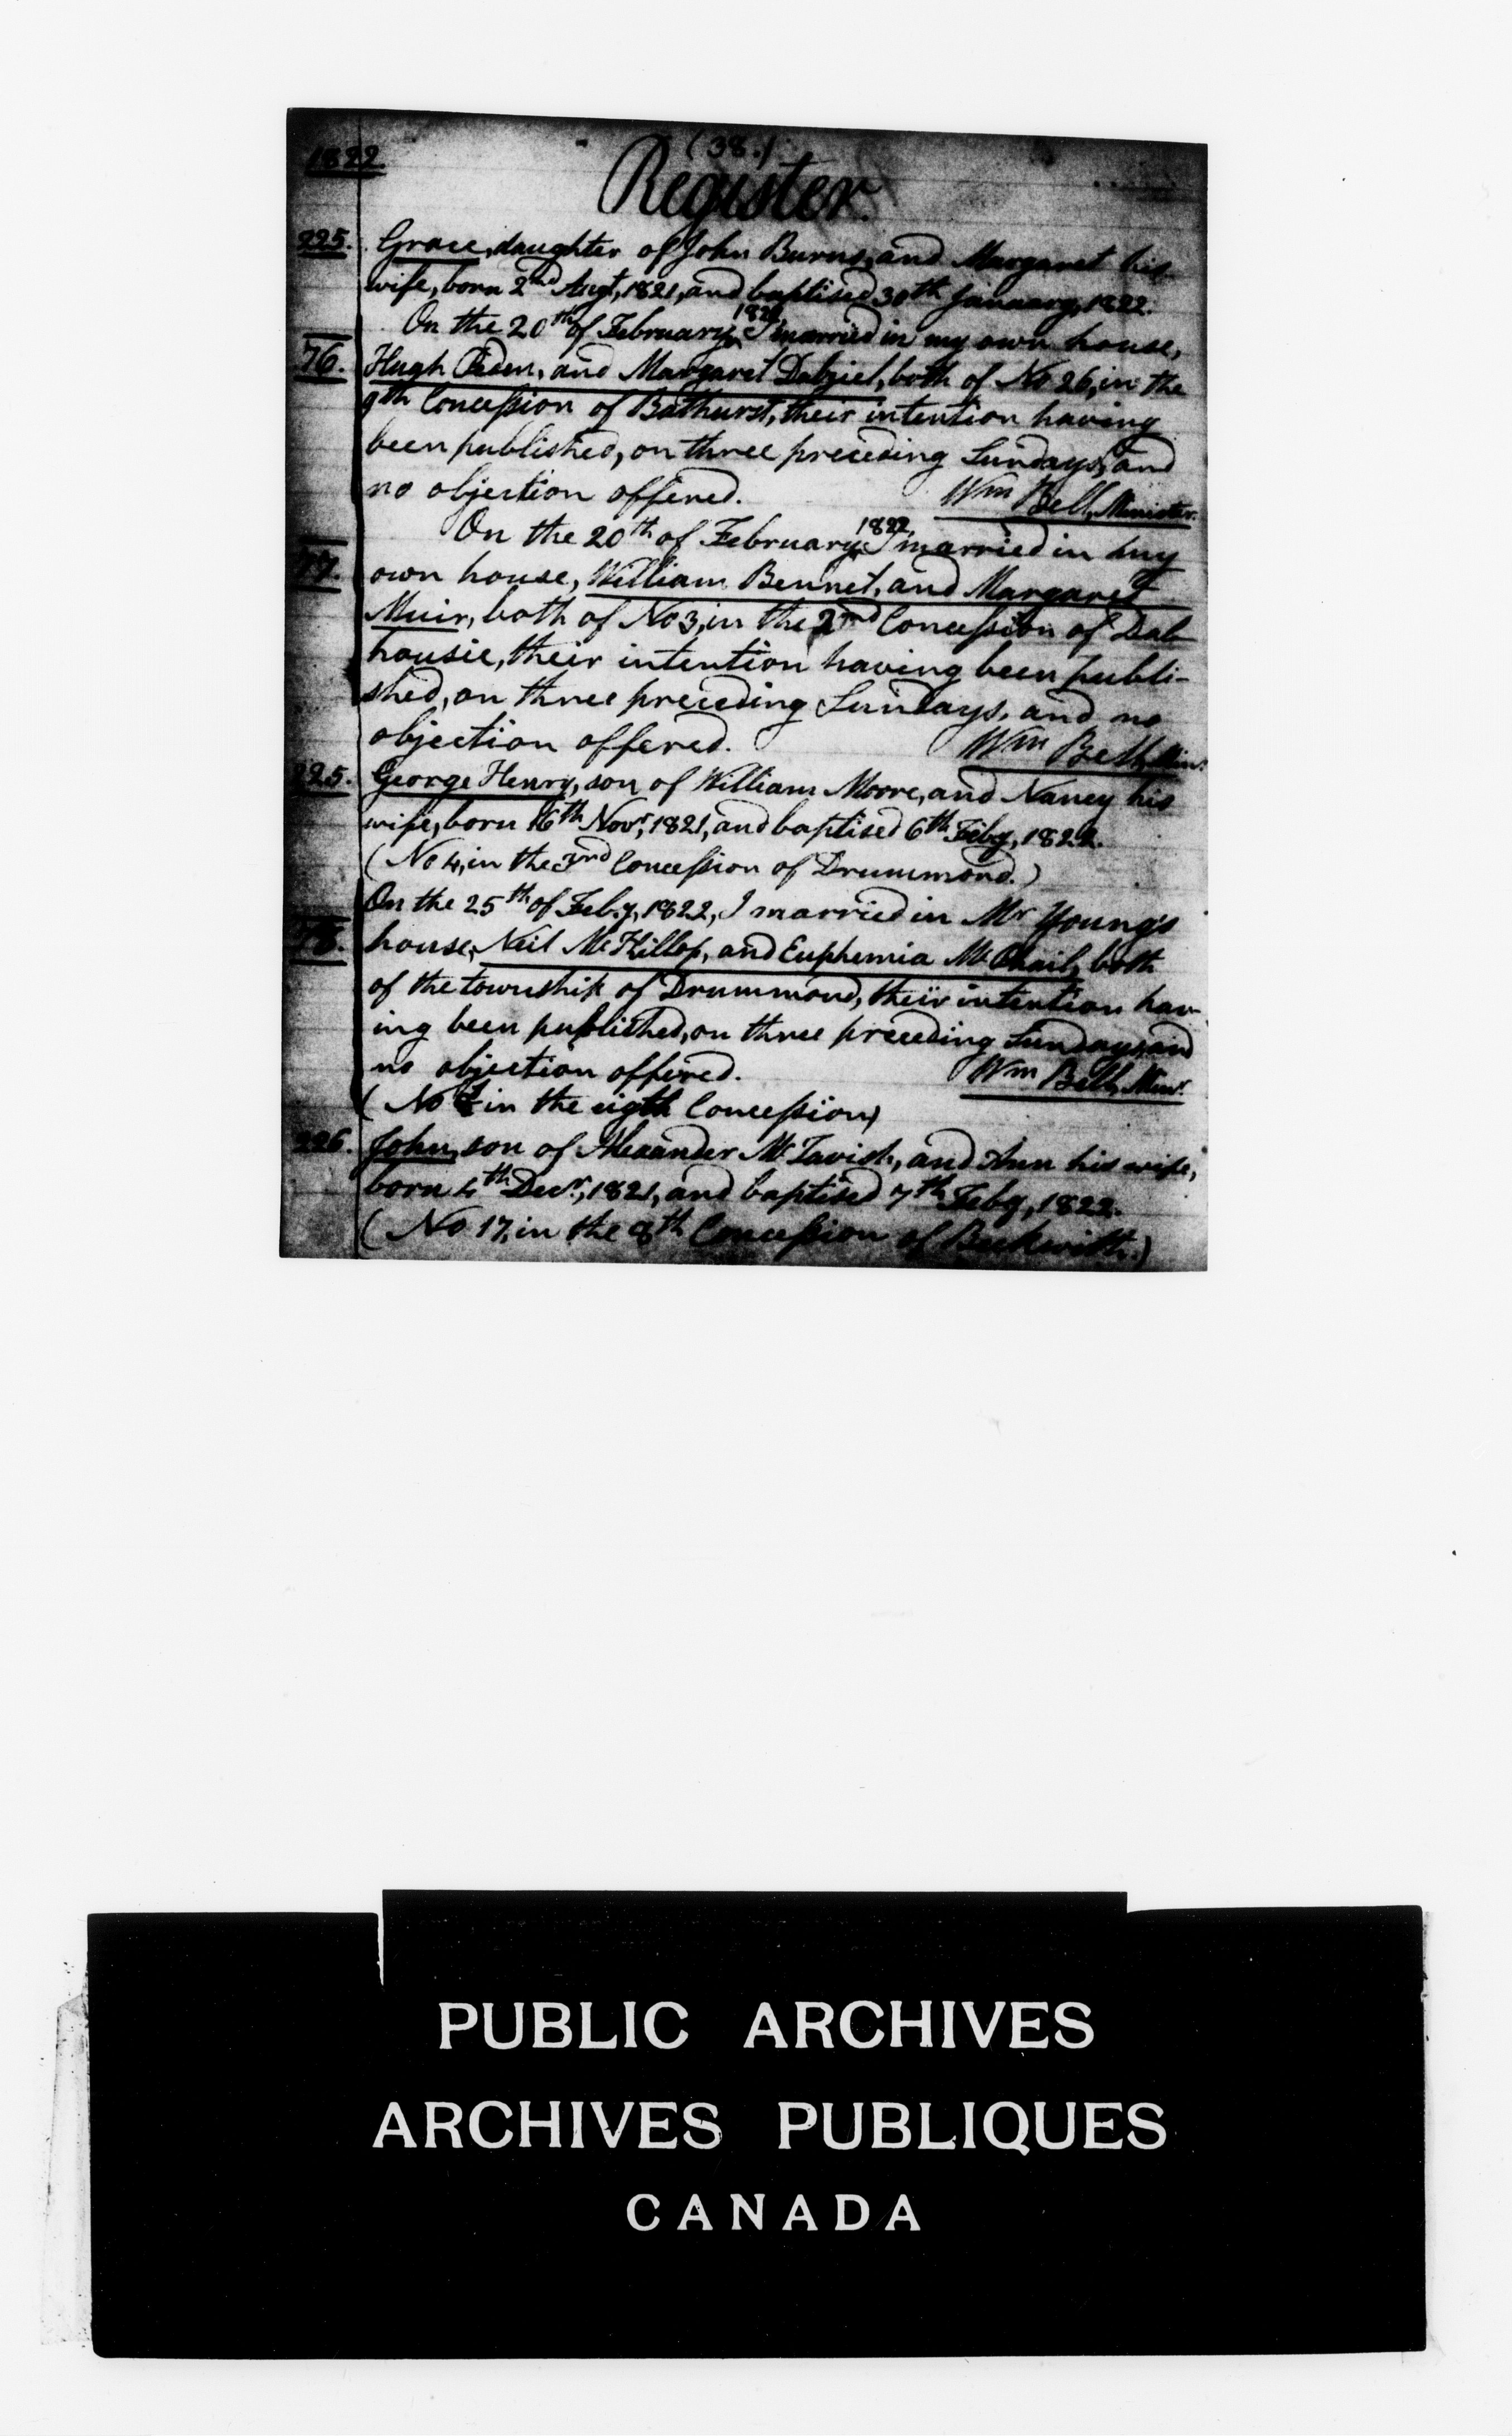 (38.)
1822.
Register.
225. Grace, daughter of John Burns, and Margaret his
wife, born 2nd Augt, 1821, and baptised 30th January, 1822.
On the 20th of February, 1822, I married in my own house,
76. Hugh Peden, and Margaret Dalziel, both of No 26, in the
9th Concession of Bathurst, their intention having
been published, on three preceding Sundays, and
no objection offered. Wm Bell, Minister.
On the 20th of February, 1822, I married in my
77. own house, William Bennet, and Margaret
Muir, both of No 3, in the 2nd Concession of Dal-
housie, their intention having been publi-
shed, on three preceding Sundays, and no
objection offered. Wm Bell, Minr
225. George Henry, son of William Moore, and Nancy his
wife, born 16th Novr, 1821, and baptised 6th Feby, 1822.
(No 4, in the 3rd Concession of Drummond.)
On the 25th of Feby, 1822, I married in Mr Young's
78. house, Neil McKillop, and Euphemia McPhail, both
of the township of Drummond, their intention hav-
ing been published, on three preceding Sundays, and
no objection offered. Wm Bell, Minr.
(No in the eigth Concession)
226. John, son of Alexander McTavish, and Ann his wife,
born 4th Decr, 1821, and baptised 7th Feby, 1822.
(No 17, in the 8th Concession of Beckwith.)
PUBLIC ARCHIVES
ARCHIVES PUBLIQUES
CANADA